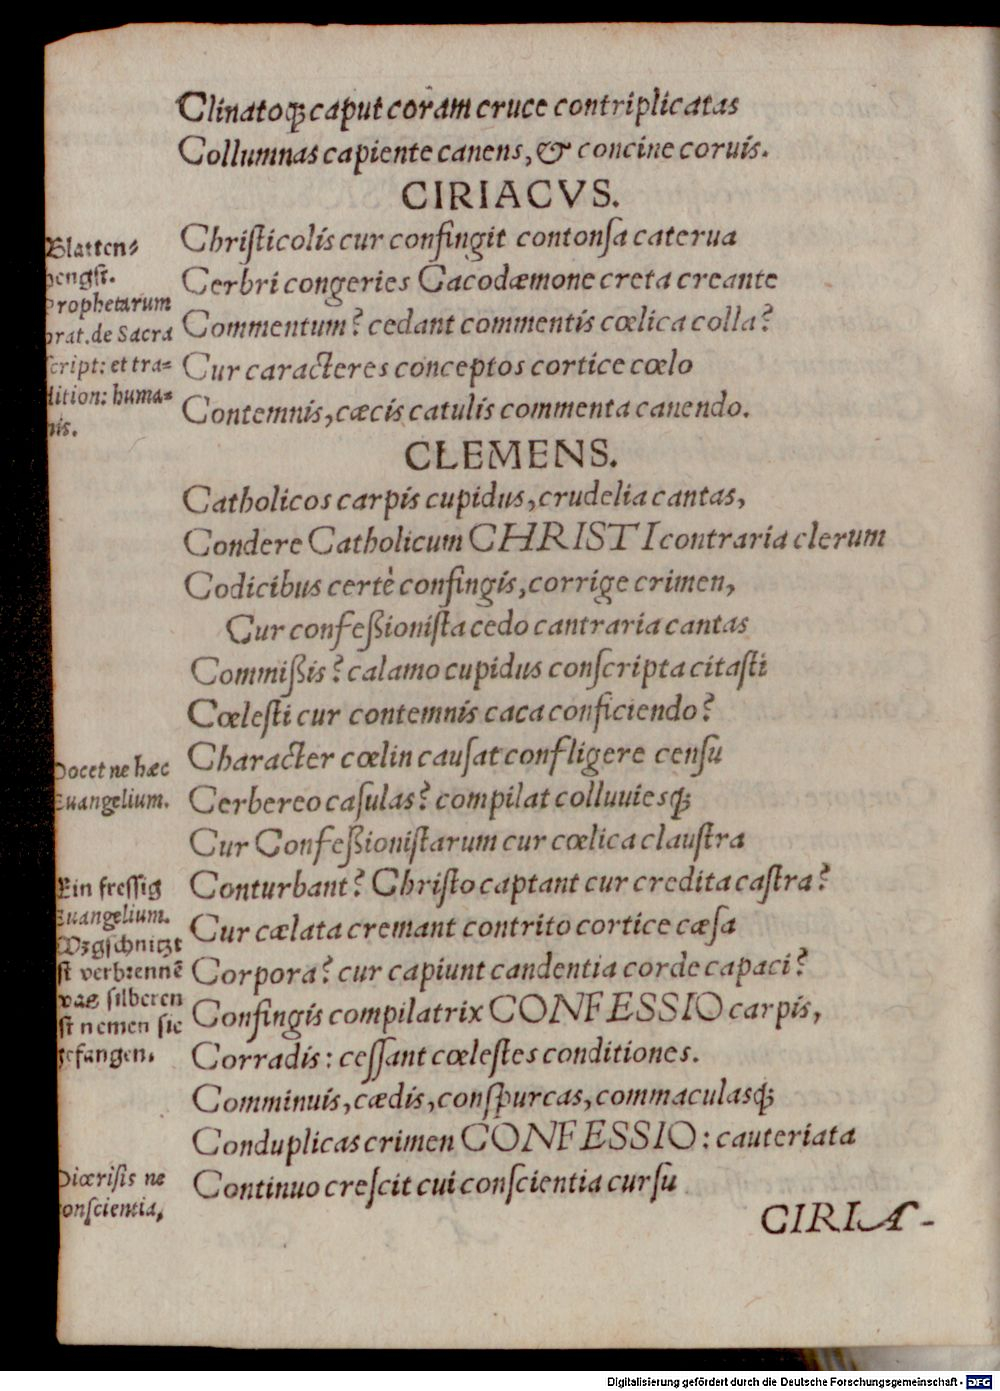 Clinatoq́; caput coram cruce contriplicatas
Collumnas capiente canens, & concine coruis.
CIRIACVS.
Christicolis cur confingit contonsa caterua
Cerbri congeries Cacodæmone creta creante
Commentum? cedant commentis cœlica colla?
Cur caracteres conceptos cortice cœlo
Contemnis, cæcis catulis commenta canendo.
Blatten⸗
hengst.
Prophetarum
orat. de Sacra
script: et tra=
dition: huma=
nis.
CLEMENS.
Catholicos carpis cupidus, crudelia cantas,
Condere Catholicum CHRISTI contraria clerum
Codicibus certè confingis, corrige crimen,
Cur confeßionista cedo cantraria cantas
Commißis? calamo cupidus conscripta citasti
Cœlesti cur contemnis caca conficiendo?
Character cœlin causat confligere censu
Cerbereo casulas? compilat colluuiesq́;
Cur Confeßionistarum cur cœlica claustra
Conturbant? Christo captant cur credita castra?
Cur cælata cremant contrito cortice cæsa
Corpora? cur capiunt candentia corde capaci?
Confingis compilatrix CONFESSIO carpis,
Corradis: cessant cœlestes conditiones.
Comminuis, cædis, conspurcas, commaculasq́;
Conduplicas crimen CONFESSIO: cauteriata
Continuo crescit cui conscientia cursu
Docet ne hæc
Euangelium.
Ein fressig
Euangelium.
Wzgschnitzt
ist verbrennē
was silberen
ist nemen sie
gefangen.
Diærisis ne
conscientia,
CIRIA-
Digitalisierung gefördert durch die Deutsche Forschungsgemeinschaft - DFG